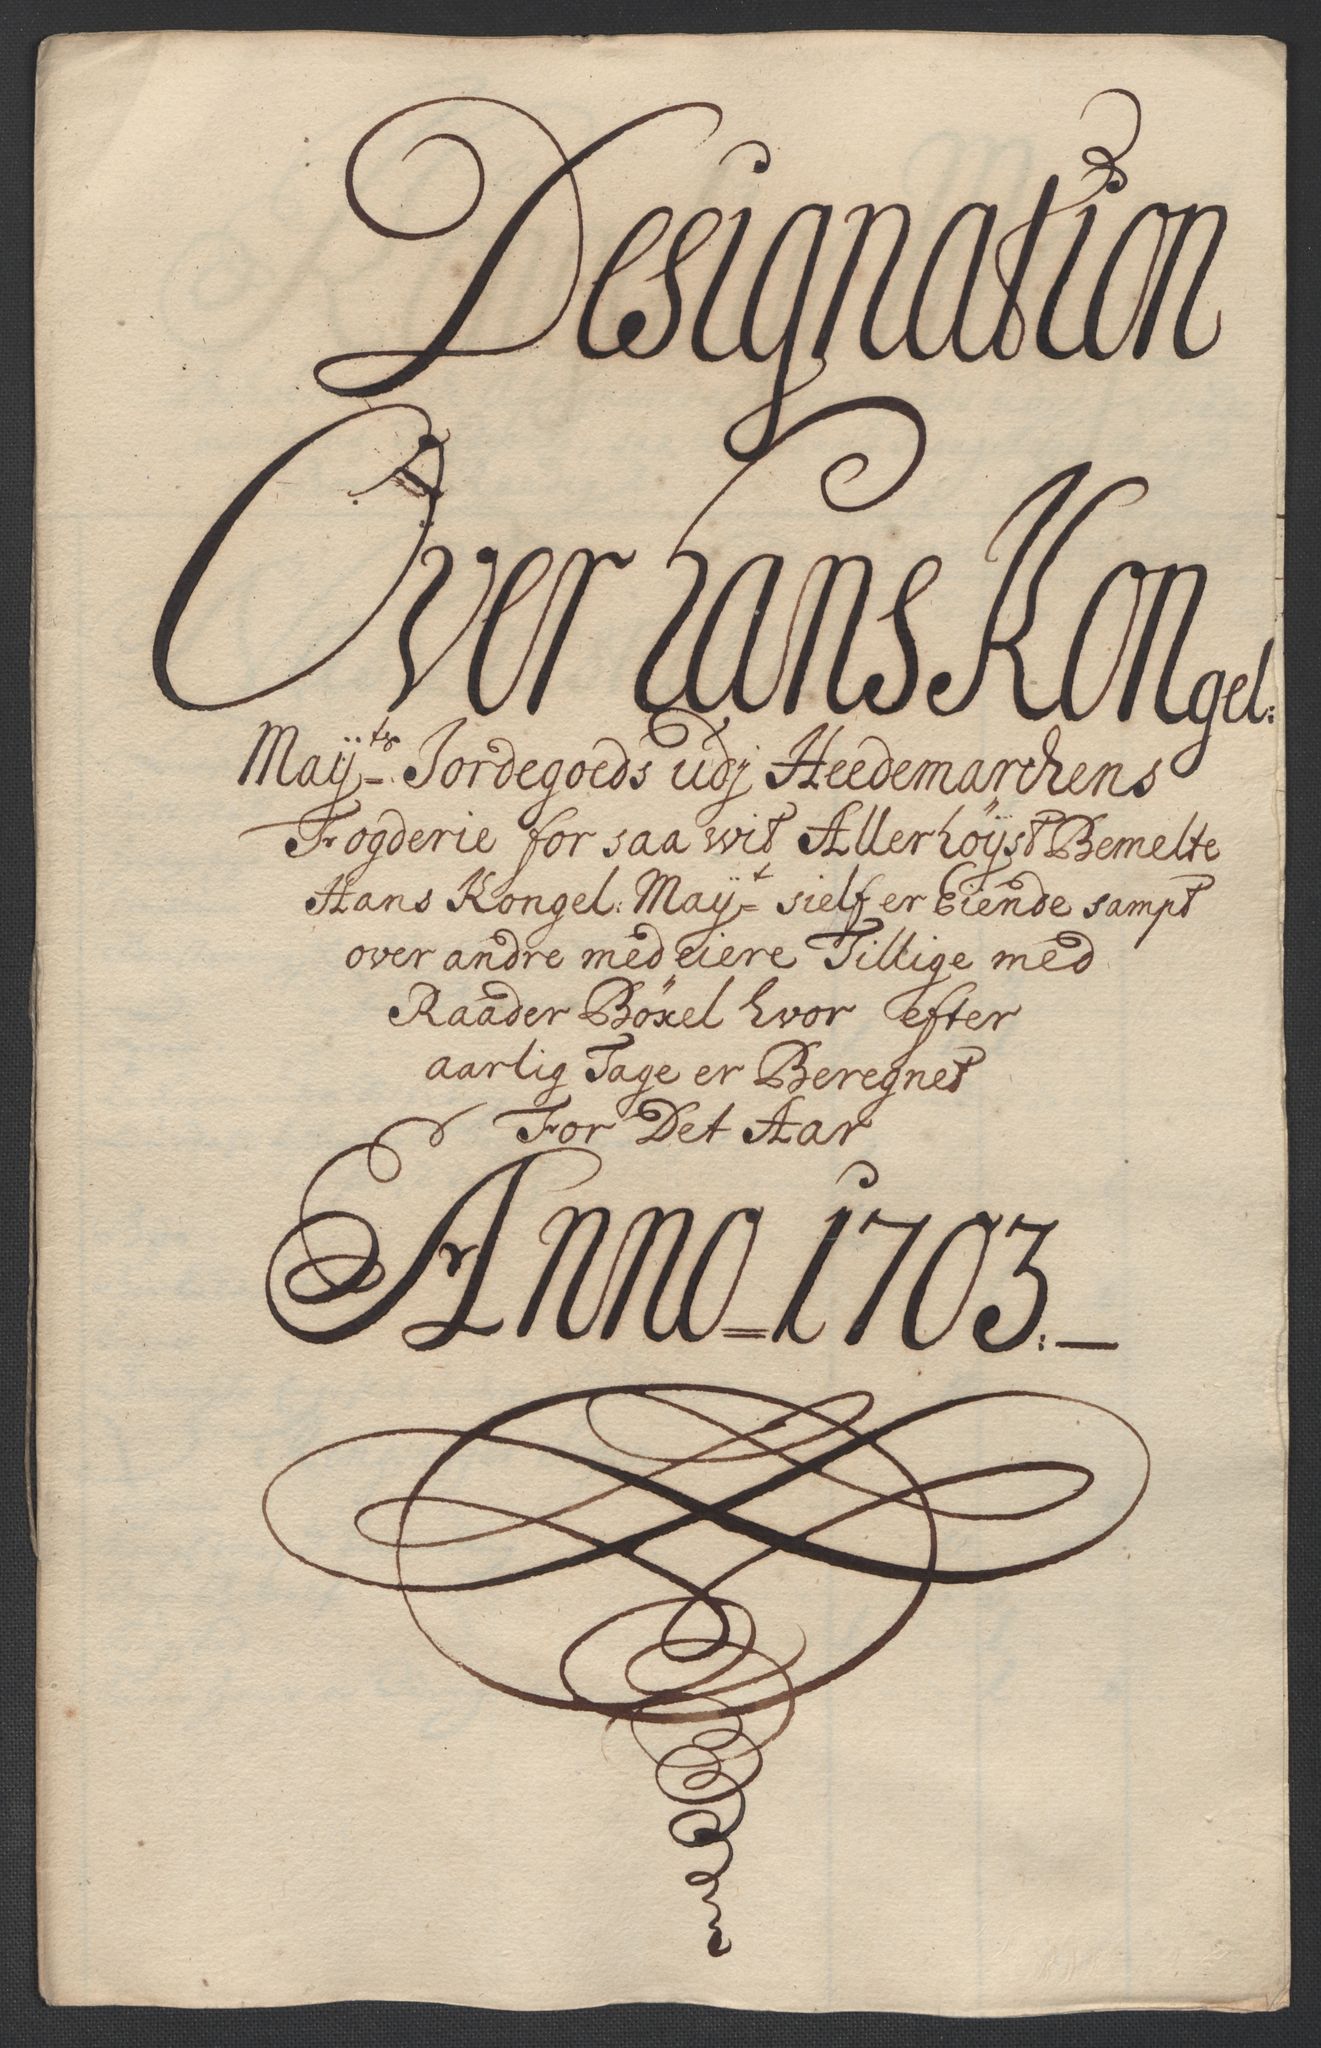 Designation
Over hans Kongel:
Maÿ:ts Jordegoeds udj Heedemarchens
Fogderie for saa wit Allerhöÿst Bemelte
Hans Kongel: Maÿt sielf er Eiende sampt
over andre med eiere Tillige med
Raader Böxel hvor efter
aarlig Tage er Beregnet
For Det Aar
Anno = 1703.